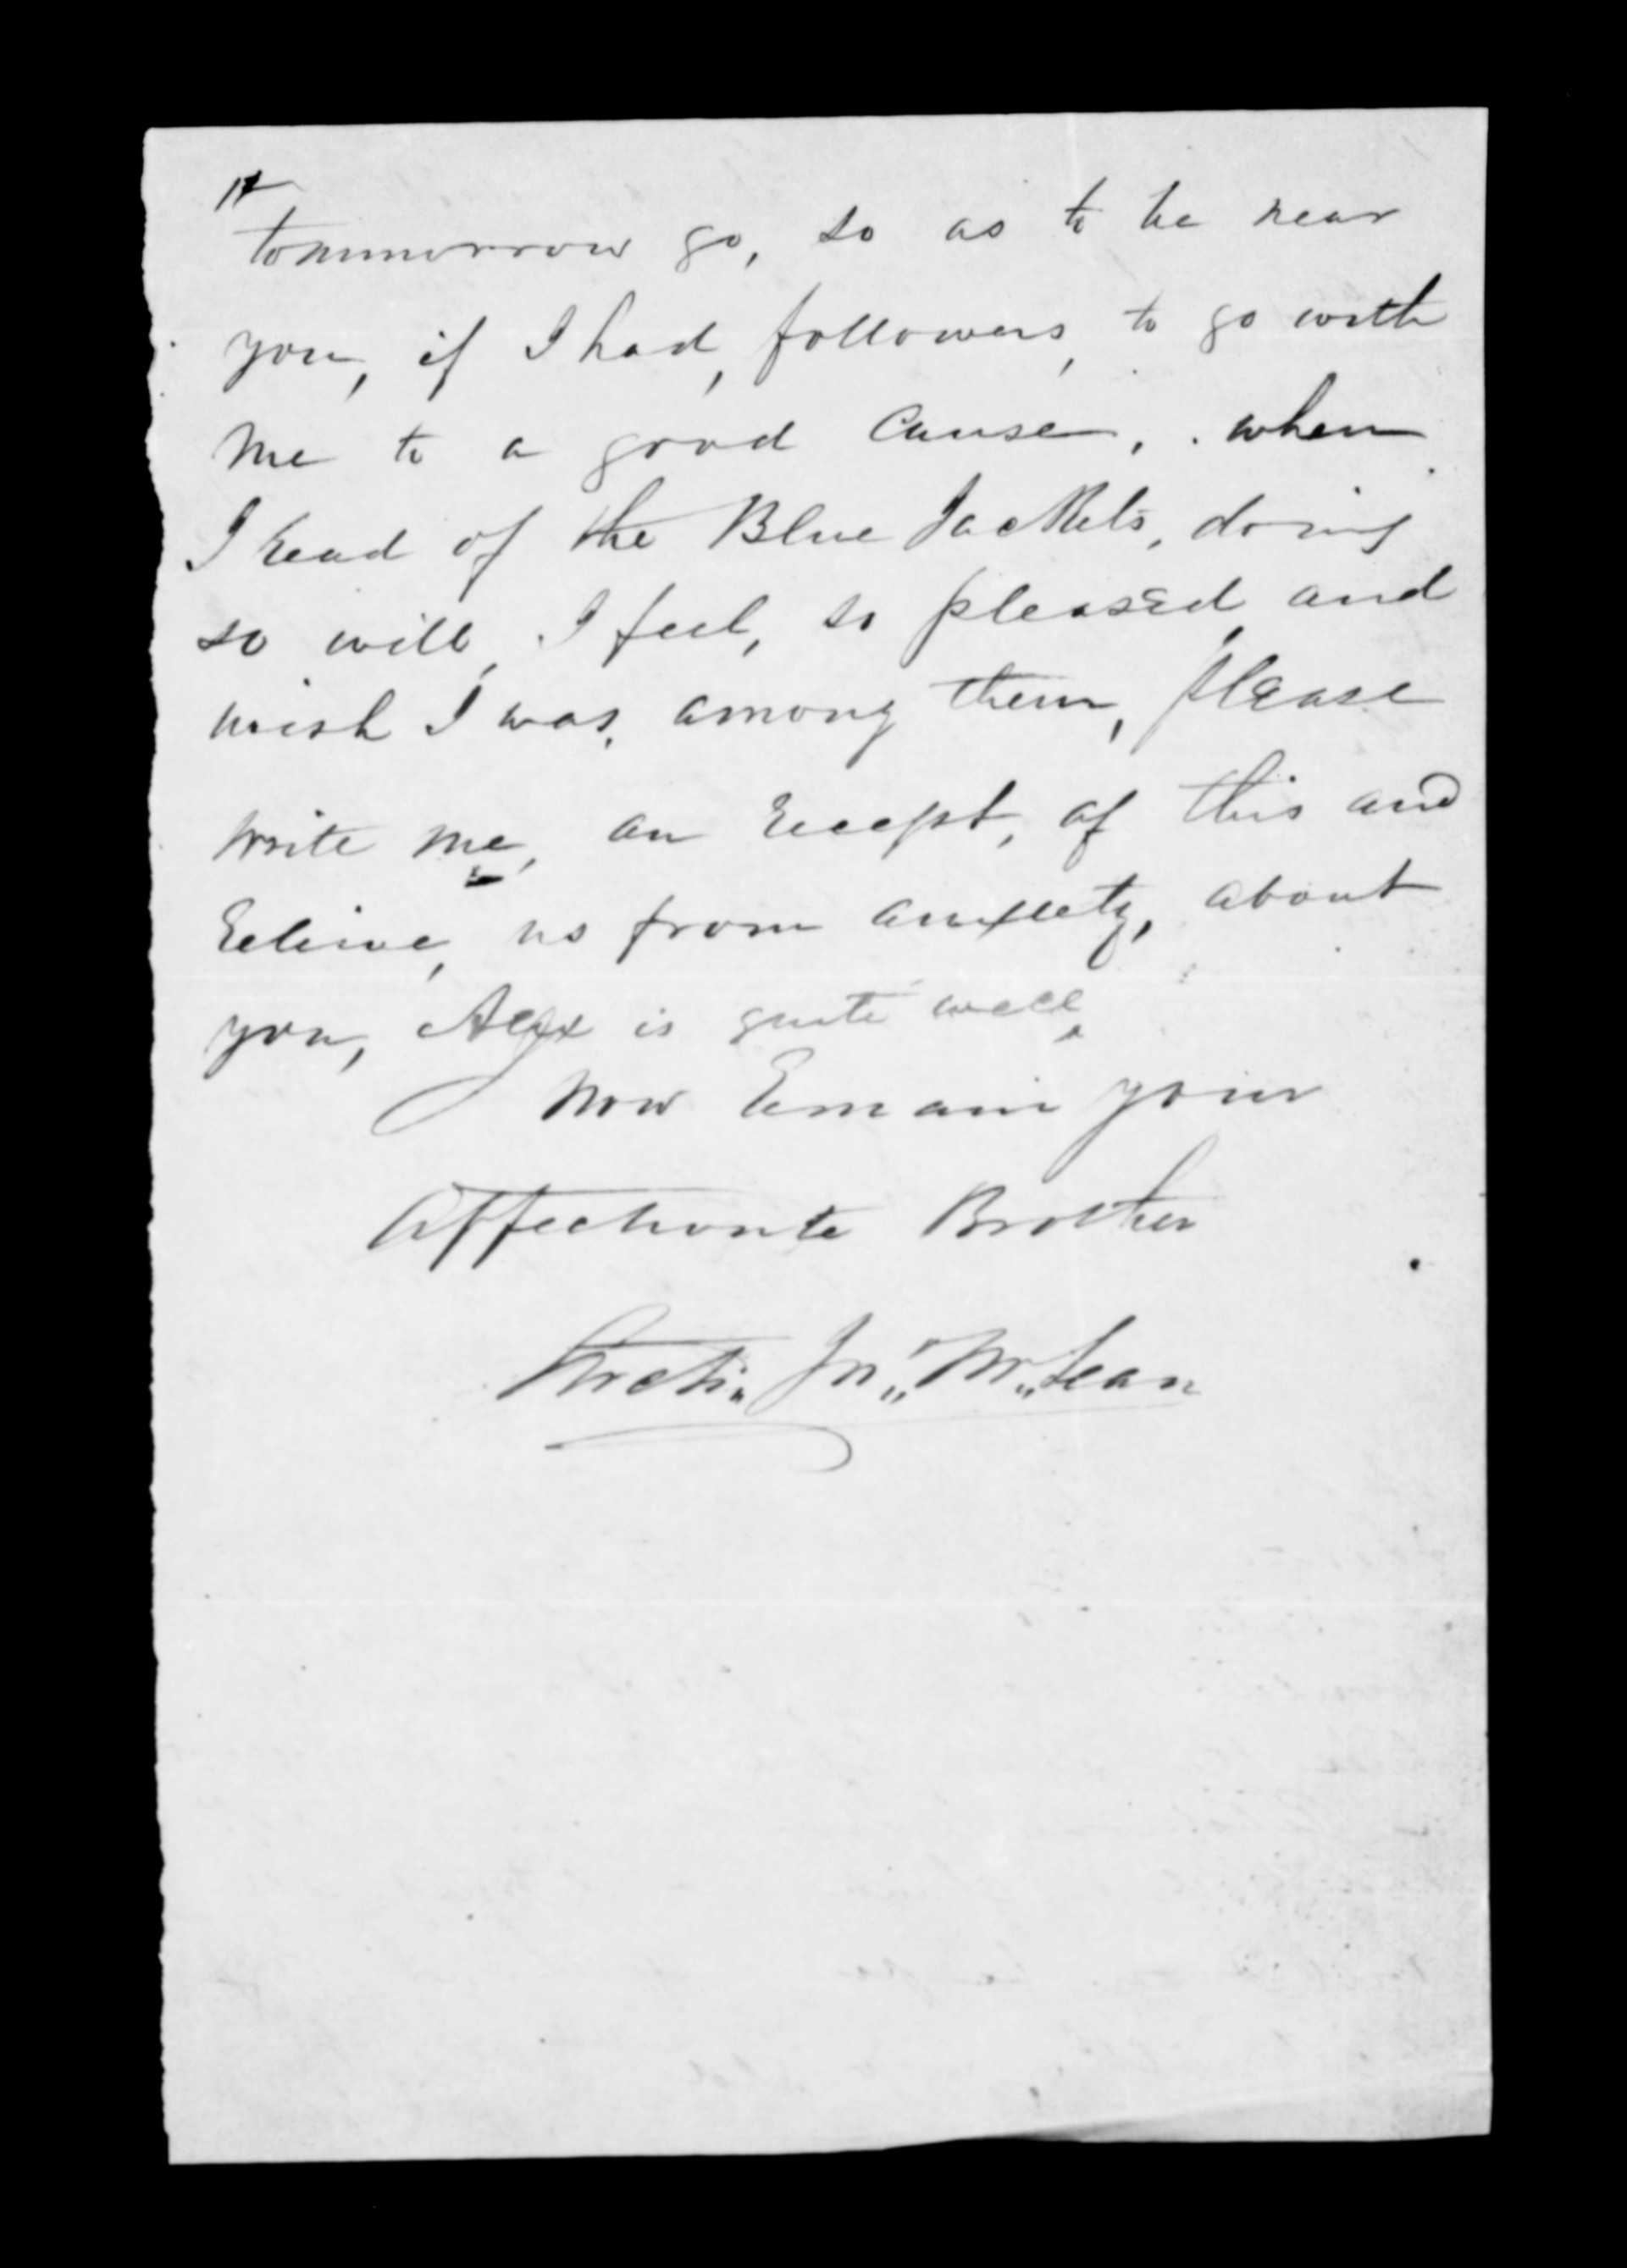 tommorrow go, so as to be near
you, if I had, followers, to go with
me to a good cause, . when
I read of the Blue Jackets, doing
so will, I feel, so pleased, and
wish I was, among them, please
write me, an receipt, of this and
relieve, us from anxiety, about
you, Alex is quite well,
Now remain your
Affectionate Brother
Jn" McLean